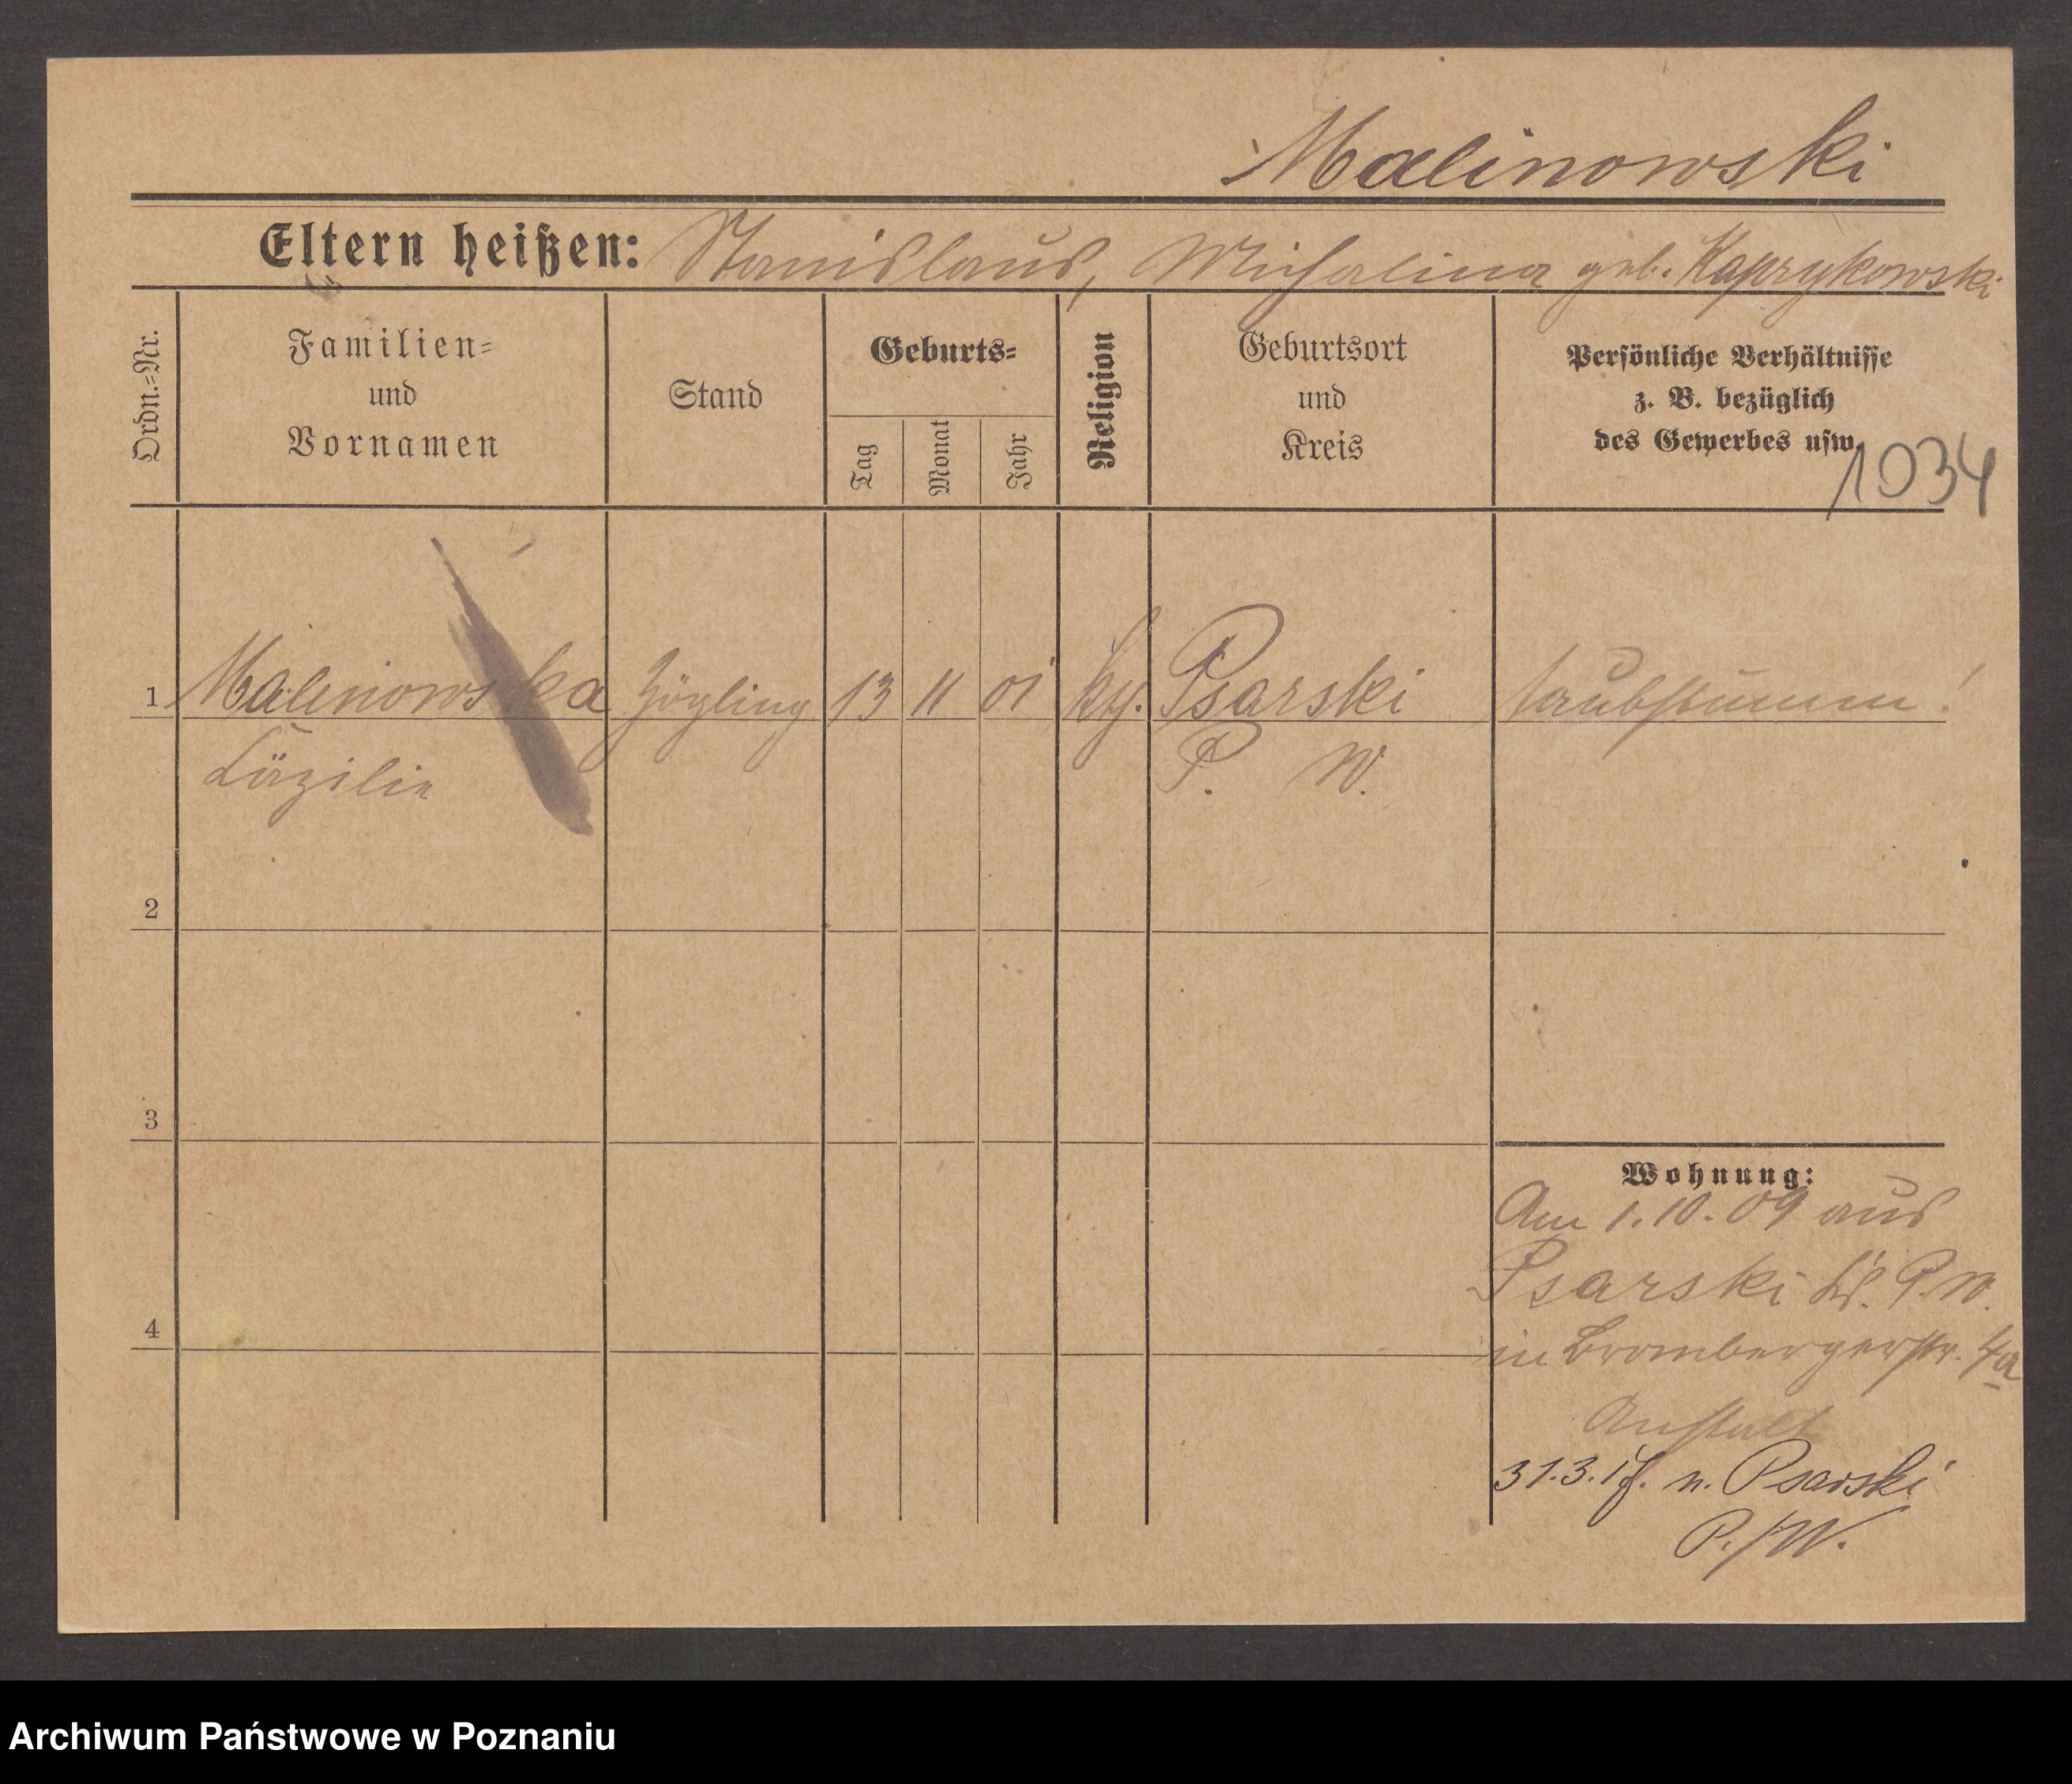 Malinowski
Eltern heißen: Stanislaus, Michalina geb. Kaprykowski
Ordn.=Nr.
Familien=
und
Vornamen
Stand
Geburts=
Tag
Monat
Jahr
Religion
Geburtsort
und
Kreis
Persönliche Verhältnisse
z. B. bezüglich
des Gewerbes usw.
1034
1 Malinowska Zögling 13 11 01 kth. Psarski taubstumm!
Cäzilie P. W.
2
3
4
Wohnung:
Am 1.10.09 aus
Psarski Ks. P. W.
in Brombergerstr. 4a
Anstalt
31.3. n. Psarski
P./W.
Archiwum Państwowe w Poznaniu